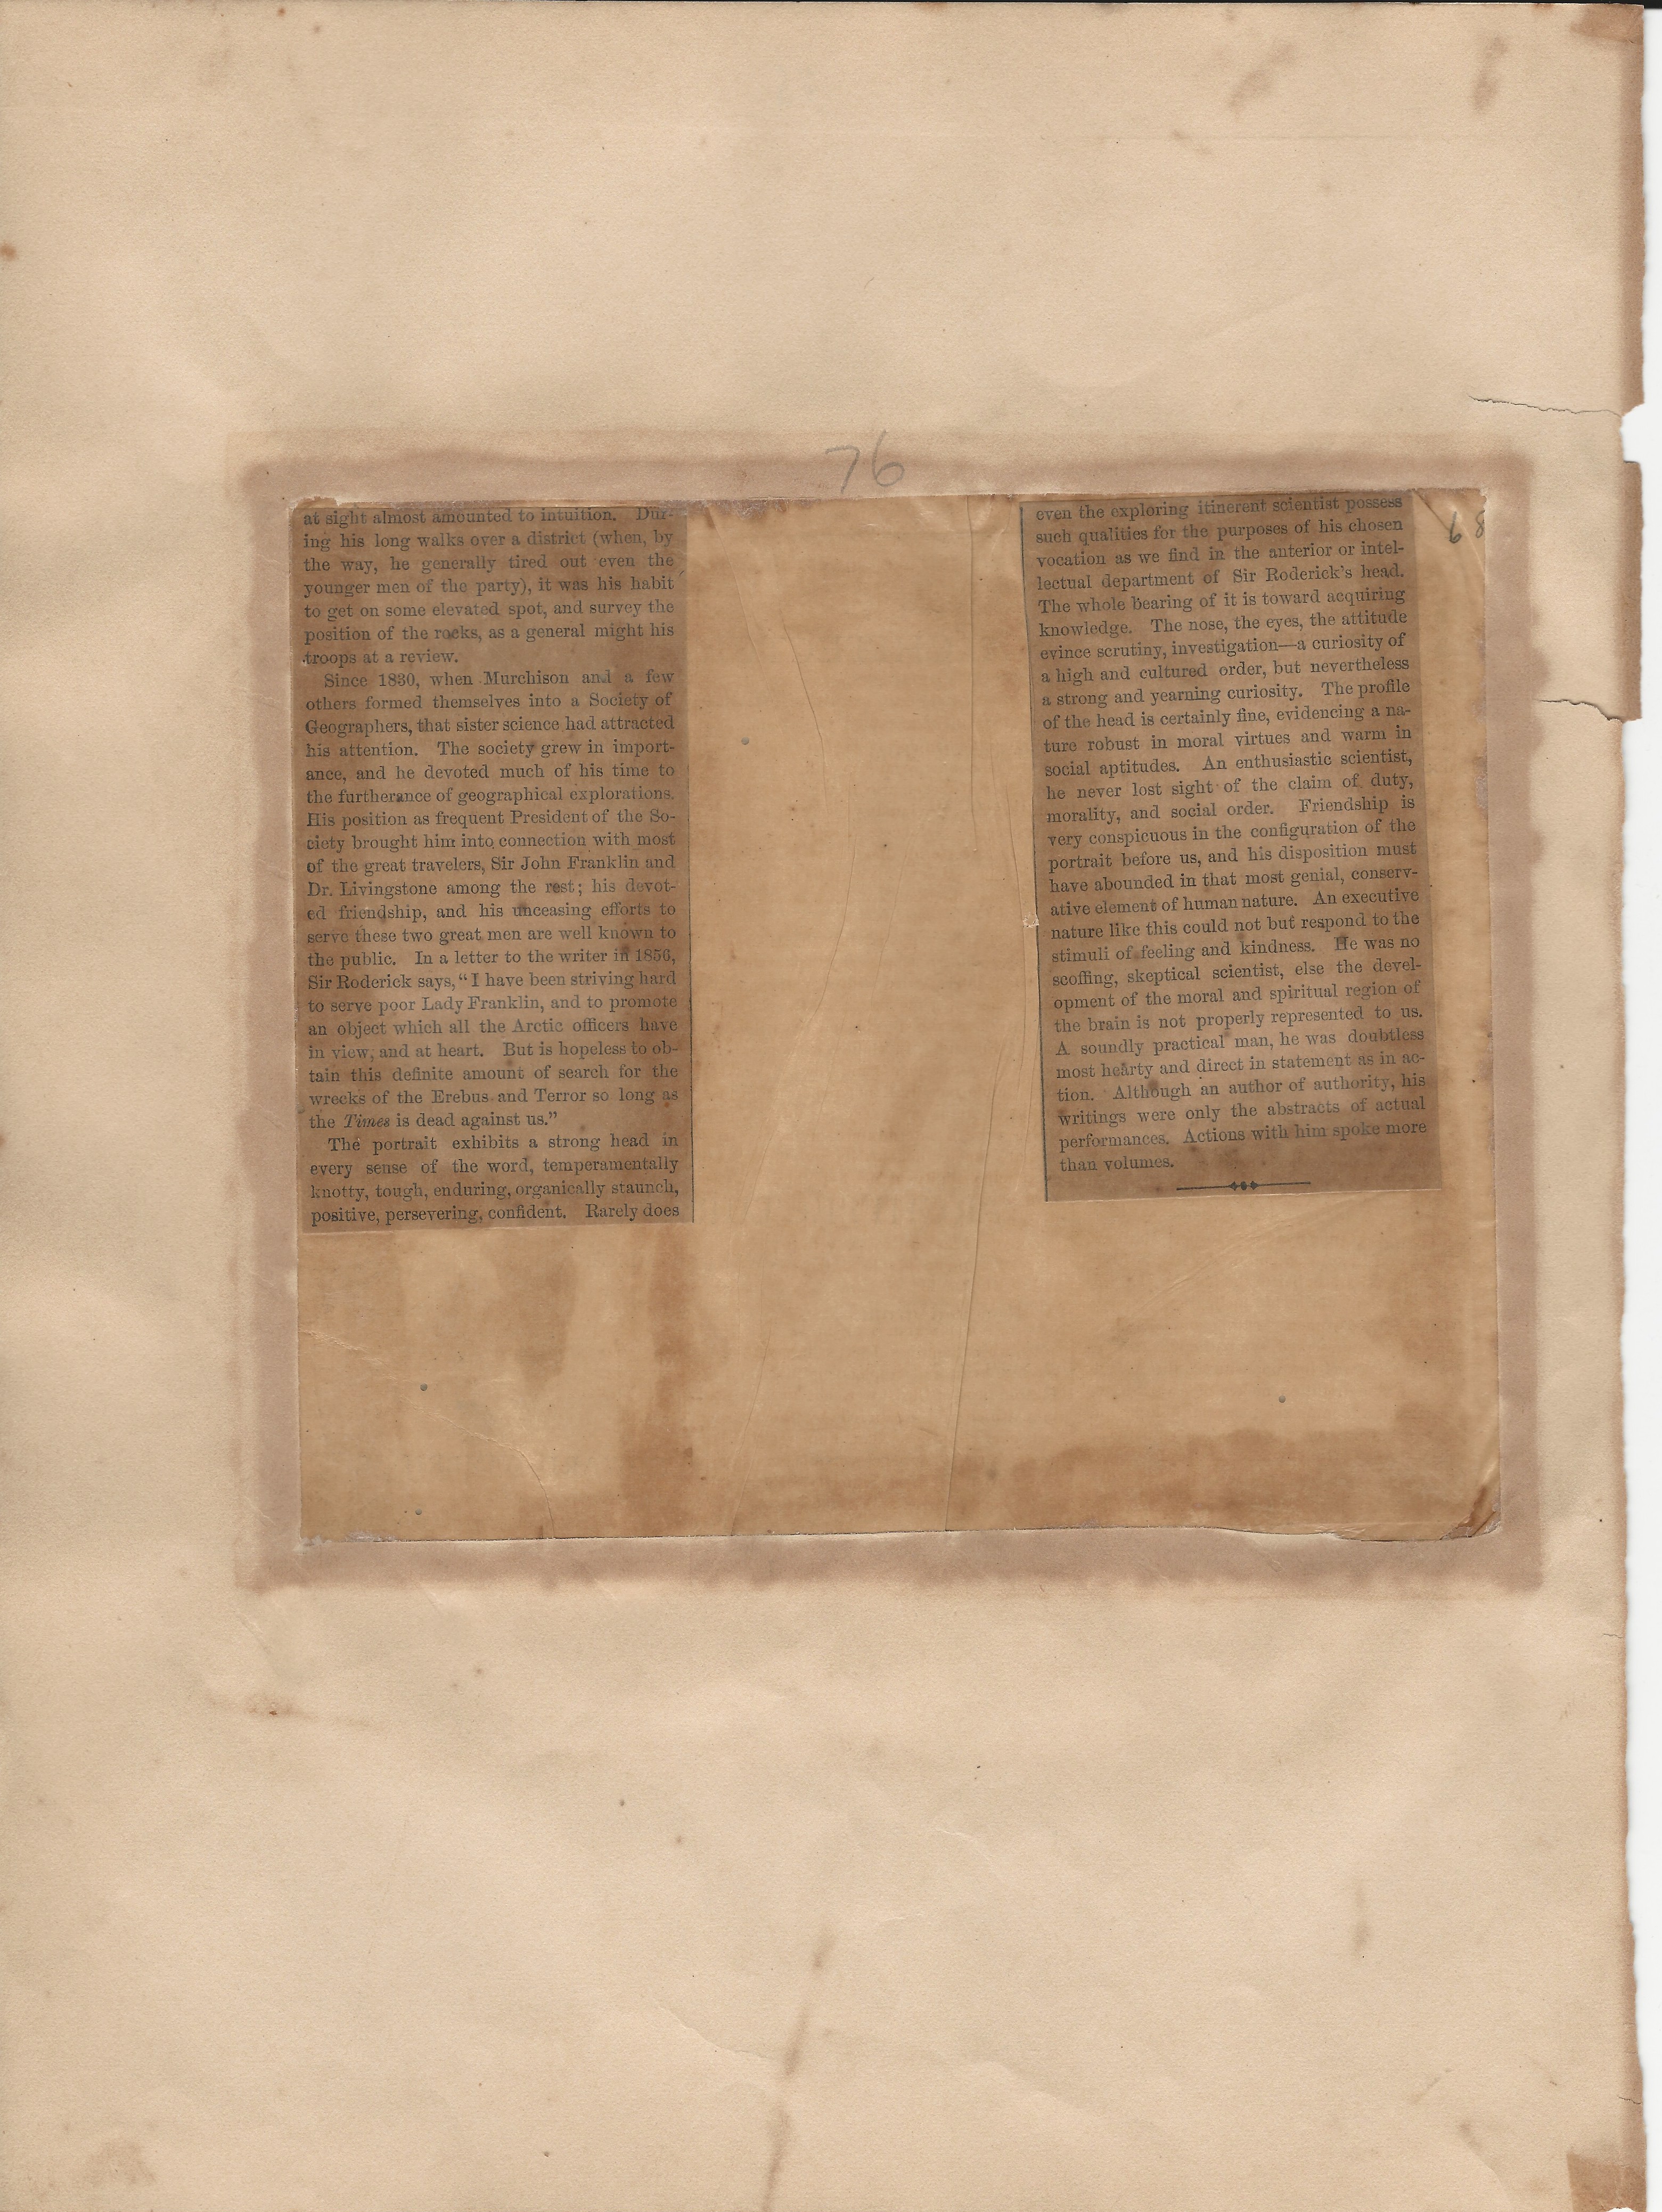 76
68
at sight almost amounted to intuition. Dur-
ing his long walks over a district (when, by
the way, he generally tired out even the
younger men of the party), it was his habit
to get on some elevated spot, and survey the
position of the rocks, as a general might his
troops at a review.
Since 1830, when Murchison and a few
others formed themselves into a Society of
Geographers, that sister science had attracted
his attention. The society grew in import-
ance, and he devoted much of his time to
the furtherance of geographical explorations.
His position as frequent President of the So-
ciety brought him into connection with most
of the great travelers, Sir John Franklin and
Dr. Livingstone among the rest; his devot-
ed friendship, and his unceasing efforts to
serve these two great men are well known to
the public. In a letter to the writer in 1856,
Sir Roderick says, “I have been striving hard
to serve poor Lady Franklin, and to promote
an object which all the Arctic officers have
in view, and at heart. But is hopeless to ob-
tain this definite amount of search for the
wrecks of the Erebus and Terror so long as
the Times is dead against us.”
The portrait exhibits a strong head in
every sense of the word, temperamentally
knotty, tough, enduring, organically staunch,
positive, persevering, confident. Rarely does
even the exploring itinerent scientist possess
such qualities for the purposes of his chosen
vocation as we find in the anterior or intel-
lectual department of Sir Roderick's head.
The whole bearing of it is toward acquiring
knowledge. The nose, the eyes, the attitude
evince scrutiny, investigation—a curiosity of
a high and cultured order, but nevertheless
a strong and yearning curiosity. The profile
of the head is certainly fine, evidencing a na-
ture robust in moral virtues and warm in
social aptitudes. An enthusiastic scientist,
he never lost sight of the claim of duty,
morality, and social order. Friendship is
very conspicuous in the configuration of the
portrait before us, and his disposition must
have abounded in that most genial, conserv-
ative element of human nature. An executive
nature like this could not but respond to the
stimuli of feeling and kindness. He was no
scoffing, skeptical scientist, else the devel-
opment of the moral and spiritual region of
the brain is not properly represented to us.
A soundly practical man, he was doubtless
most hearty and direct in statement as in ac-
tion. Although an author of authority, his
writings were only the abstracts of actual
performances. Actions with him spoke more
than volumes.